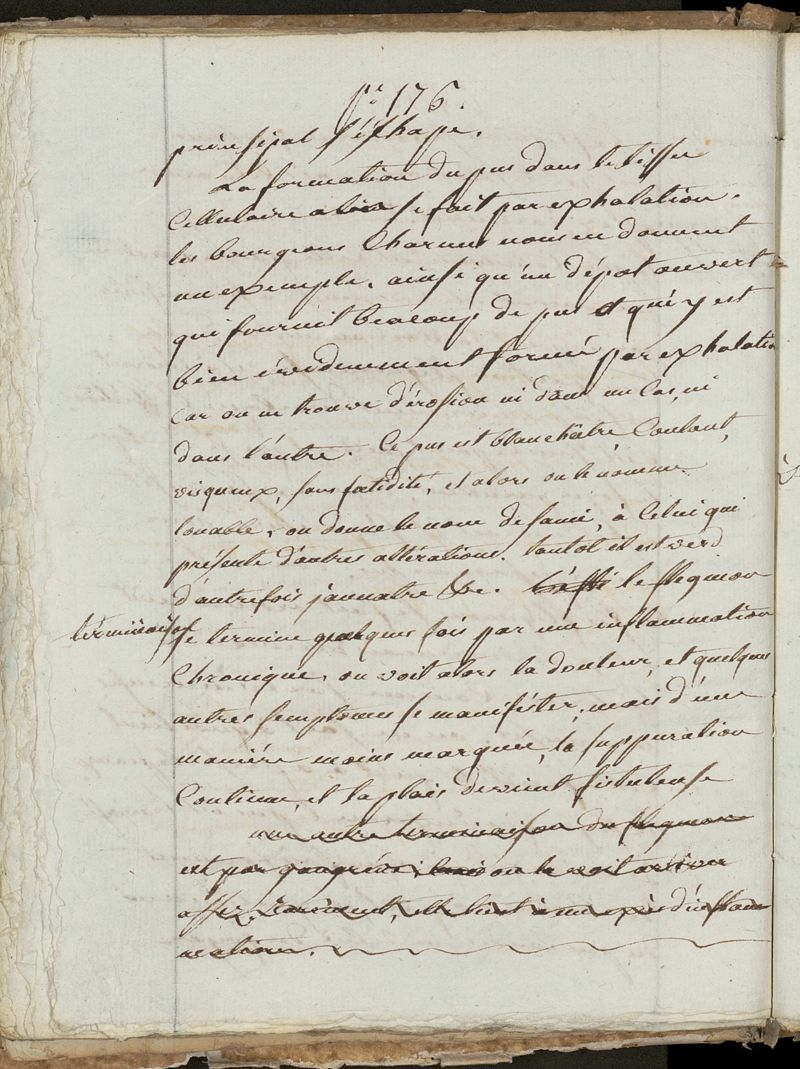 176.
principal s'échape.
La formation du pus dans le tissu
Cellulaire se fait par exhalation.
les bourgeons Charnus nous en donnent
un exemple, ainsi qu'un dépot ouvert
qui fournit beacoup de pus et qui y est
bien évidemment formé par exhalation
car on ne trouve d'érosion ni dans un Cas, ni
dans l'autre. Ce pus est blanchâtre Coulant,
visqueux, sans fœtidité, et alors on le nomme
louable, on donne le nom de sanie, à Celui qui
présente d'autres altérations. tantot il est verd
d'autrefois jaunatre &c. le flegmon
terminaison
se termine quelques fois par une inflammation
Chronique, on voit alors la douleur, et quelques
autres semptomes se manifester, mais d'une
maniére moins marquée, la suppuration
Continue, et la plaie devient fistuleuse
une autre terminaison du flegmon
est par gangréne, mais on le voit arriver
assez rarement, elle tient à un excès d'inflam
mation.